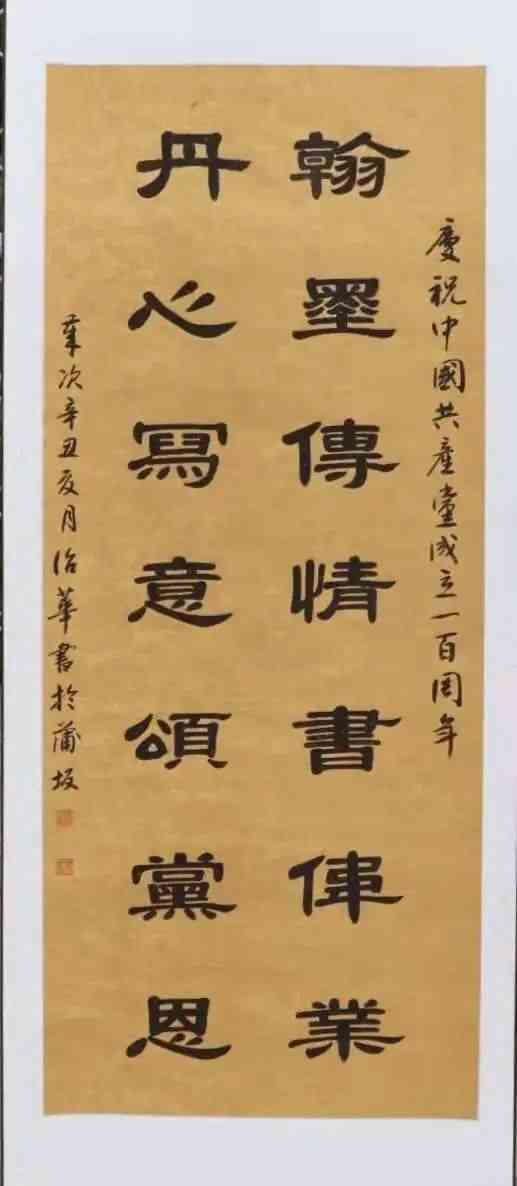 慶祝中國共產黨成立一百周年
翰墨傳情書偉業
丹心寫意頌黨恩
歲次辛丑夏月治華書於蒲坂